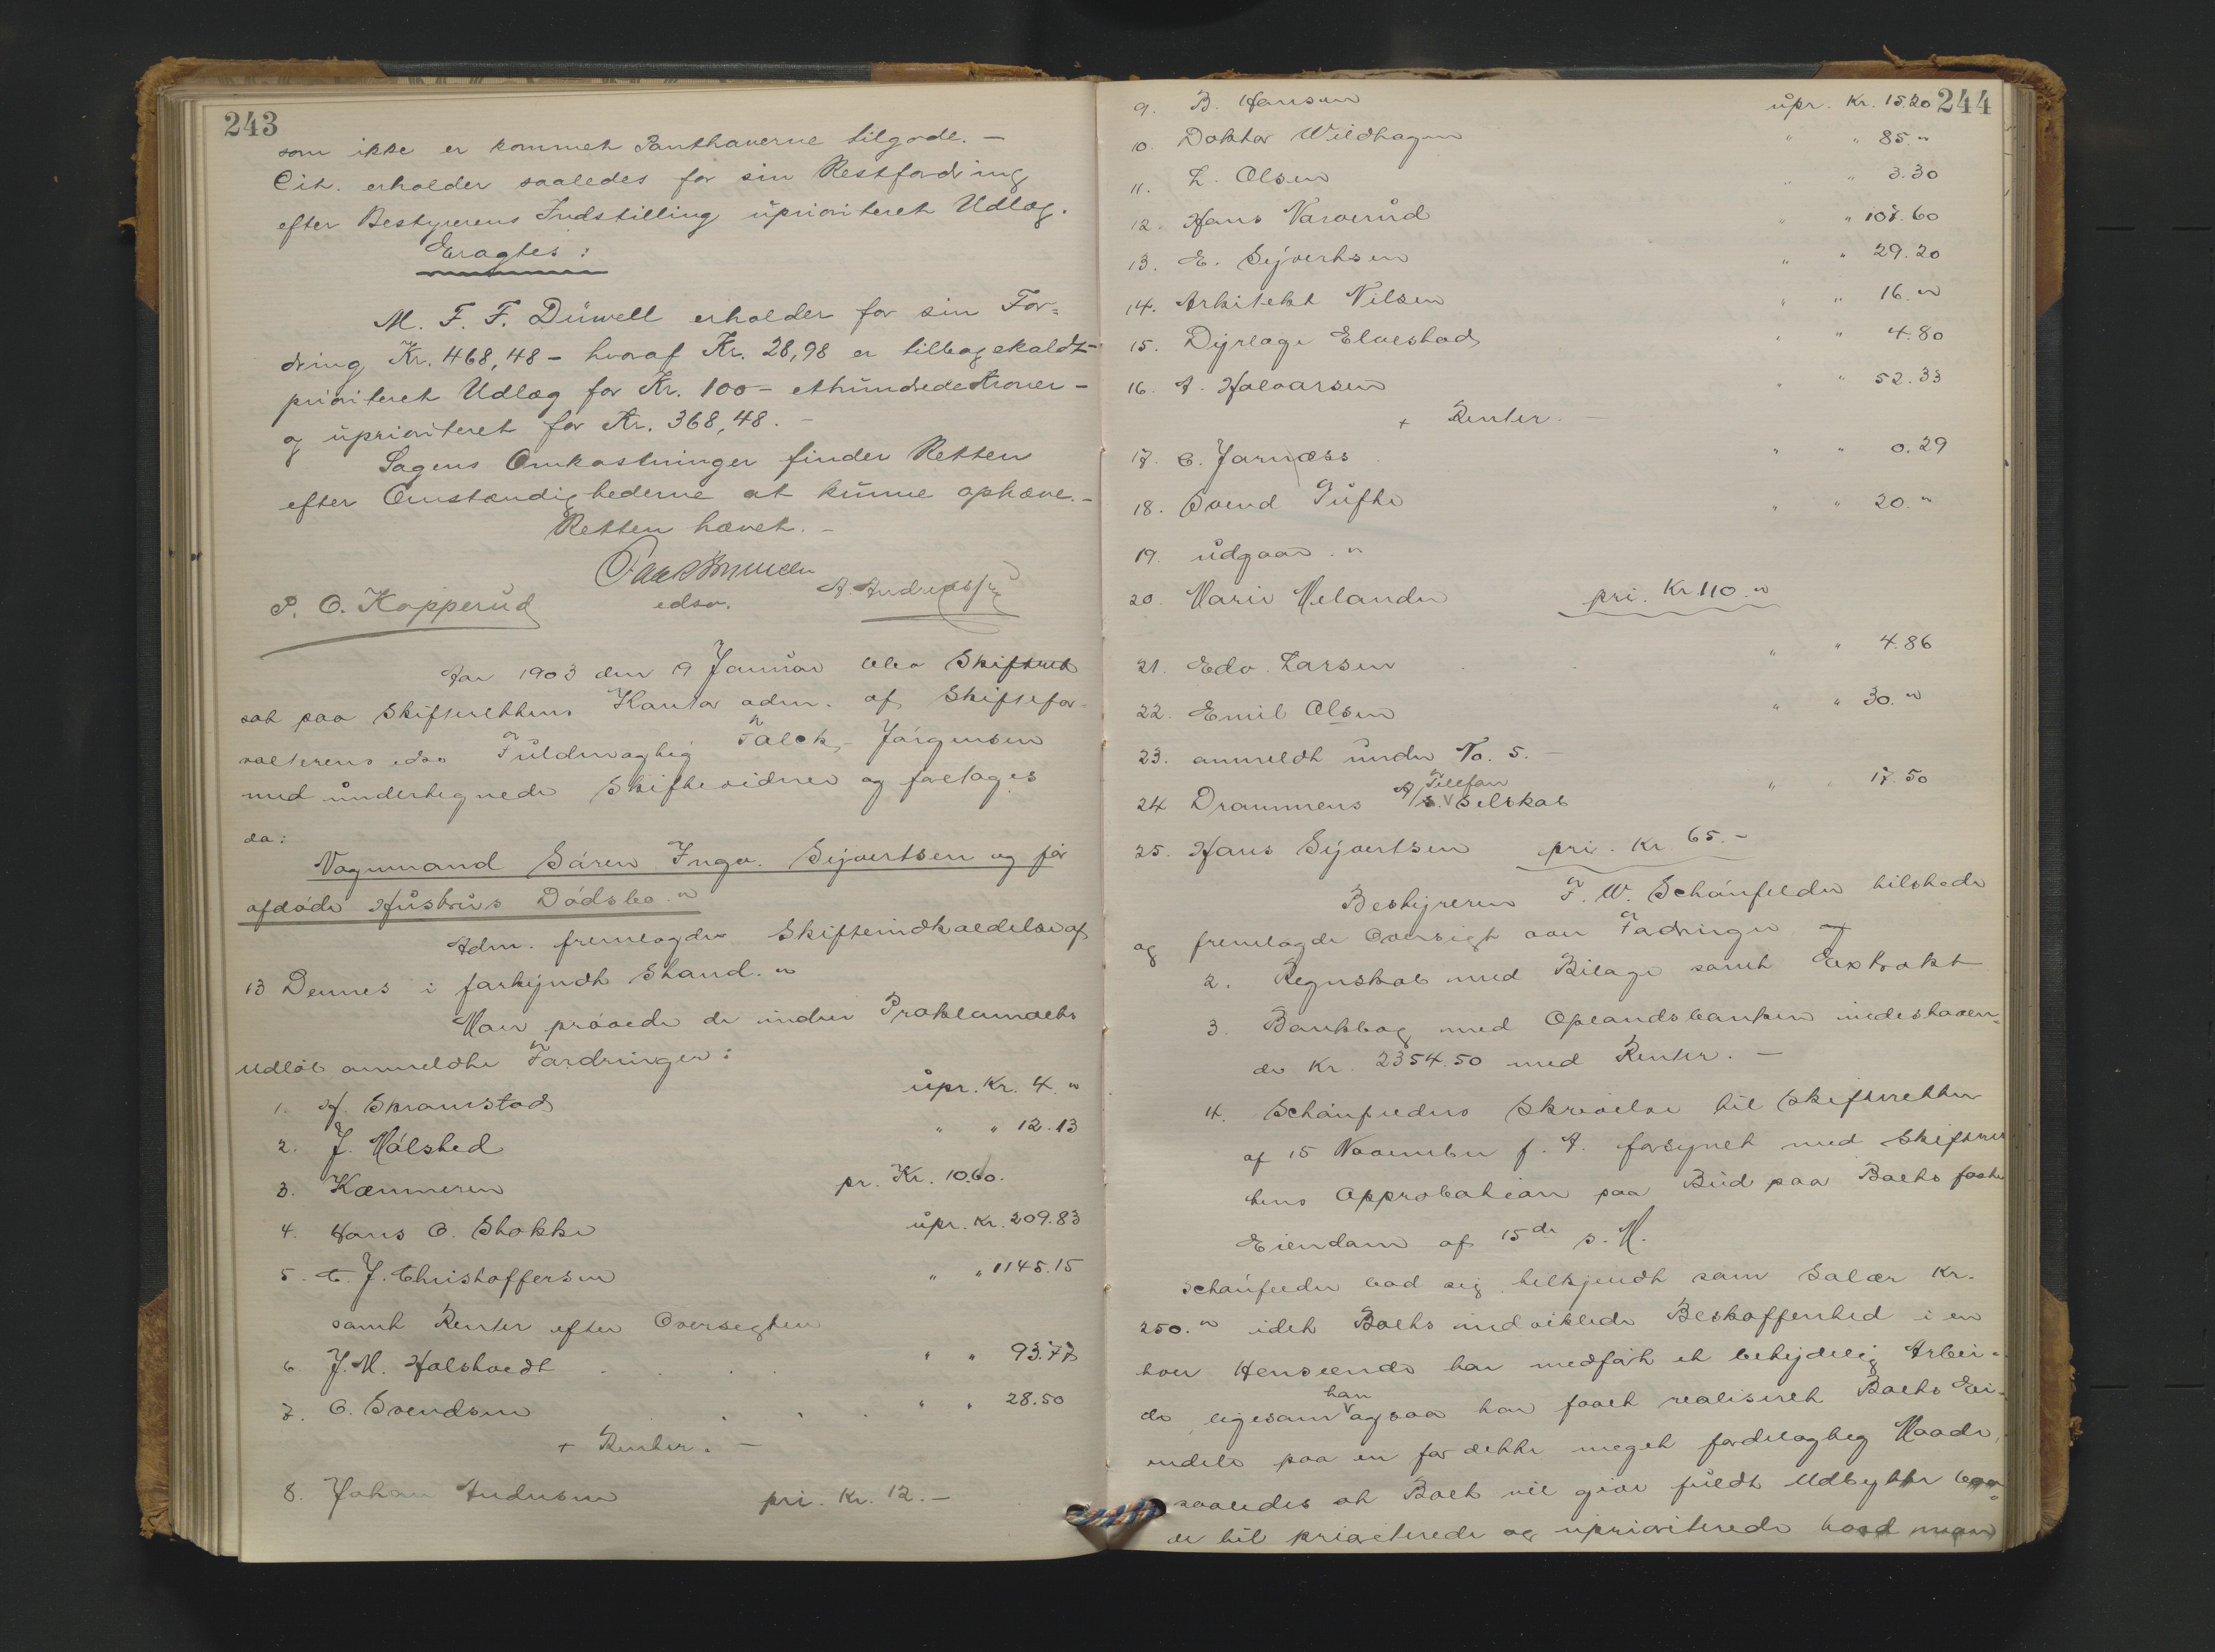 243
som ikke er kommet Panthaverne tilgode. –
Cit. erholder saaledes for sin Restfordring
efter Bestyrerens Indstilling uprioriteret Udlæg.
Eragtes:
M. F. F. Düwell erholder for sin For-
dring Kr. 468,48 – hvoraf Kr. 28,98 er tilbagekaldt –
prioriteret Udlæg for Kr. 100 – ethundrede Kroner –
og uprioriteret for Kr. 368,48. –
Sagens Omkostninger finder Retten
efter Omstændighederne at kunne ophæve. –
Retten hævet. –
edsv.
P. O. Kopperud
Aar 1903 den 9 Januar blev Skifteret
sat paa Skifterettens Kontor adm. af Skiftefor-
valterens edsv Fuldmægtig Falck-Jörgensen
med undertegnede Skiftevidner og foretoges
da:
Vognmand Sören Ingv. Sijvertsen og før
afdøde Hustrus Dödsbo. "
Adm. fremlagde Skifteindkaldelse af
13 Dennes i forkyndt Stand. "
Man prövede de inden Proklamaets
Udlöb anmeldte Fordringer:
1. H. Skramstad upr. Kr. 4. "
2. J. Mölsted " " 12.13
3. Kæmneren pr. Kr. 10.60.
4. Hans O. Stokke upr. Kr. 209.83
5. C. J. Christoffersen " " 1145.15
samt Renter efter Oversigten
6 J. M. Holstvedt " " 93.77
7. O. Svendsen " " 28.50
+ Renter. –
8. Johan Andersen pri. Kr. 12. –
244
9. B. Hansen upr. Kr. 15.20
10. Doktor Wildhagen " " 85. "
11. L. Olsen " " 3.30
12. Hans Narverud " " 107.60
13. E. Sijvertsen " " 29.20
14. Arkitekt Nilsen " " 16. "
15. Dyrlæge Elvestad " " 4.80
16. A. Halvorsen " " 52.33
+ Renter. –
17. C. Jarnæss " " 0.29
18. Svend Tufte " " 20. "
19. udgaar. "
20. Marie Melander pri. Kr 110. "
21. Edv. Larsen " " 4.86
22. Emil Olsen " " 30. "
23. anmeldt under No. 5. –
24 Drammens A/S. Telefon Selskab " " 17.50
25. Hans Sijvertsen pri. Kr 65. –
Bestyreren F. W. Schönfelder tilstede
og fremlagde Oversigt over Fordringer og
2. Regnskab med Bilage samt Extrakt
3. Bankbog med Oplandsbanken indestaaen-
de Kr. 2354.50 med Renter. –
4. Schönfelders Skrivelse til Skifteretten
af 15 November f. A. forsynet med Skifteret
tens Approbation paa Bud paa Boets faste
Eiendom af 15de s. M.
Schönfelder bad sig tilkjendt som Salær Kr.
250. " idet Boets indviklede Beskaffenhed i en
hver Henseende har medført et betydelig Arbei-
de ligesom han ogsaa har faaet realiseret Boets Ei-
endele paa en for dette meget fordelagtig Maade,
saaledes at Boet vil give fuldt Udbytte baa-
de til prioriterede og uprioriterede